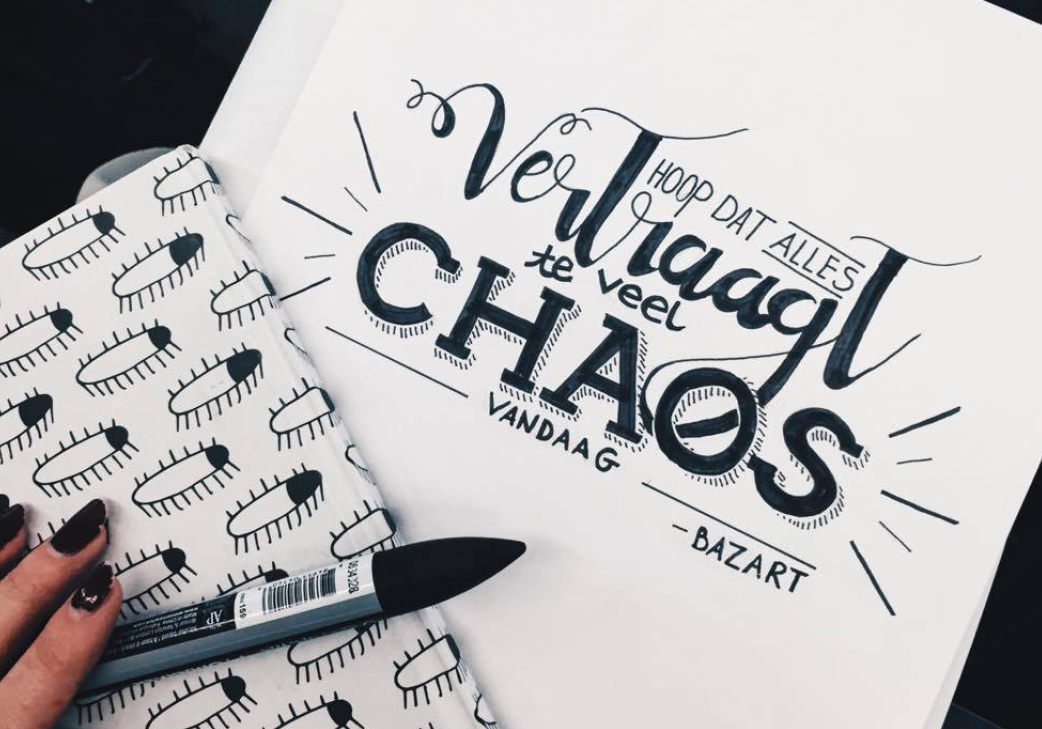 HOOP DAT ALLES
Vertraagt
te veel
CHAOS
VANDAAG
- BAZART
AP